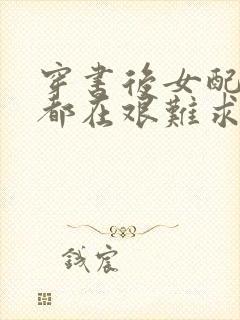 穿書後女配
都在艱難求
钱宸